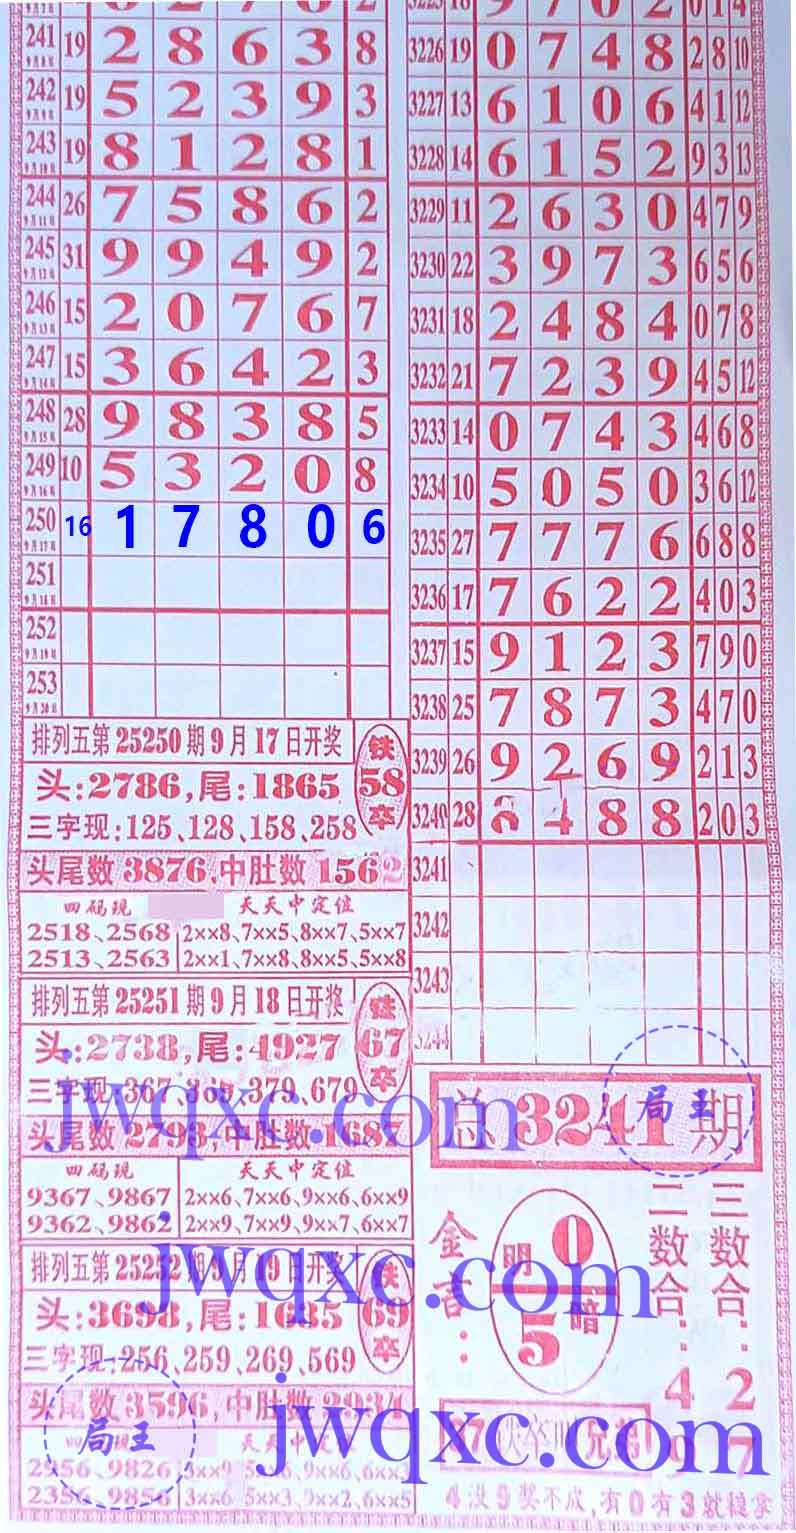 241 9月8日 19 2 8 6 3 8
242 9月9日 19 5 2 3 9 3
243 9月10日 19 8 1 2 8 1
244 9月11日 26 7 5 8 6 2
245 9月12日 31 9 9 4 9 2
246 9月13日 15 2 0 7 6 7
247 9月14日 15 3 6 4 2 3
248 9月15日 28 9 8 3 8 5
249 9月16日 10 5 3 2 0 8
250 9月17日 16 1 7 8 0 6
251 9月18日
252 9月19日
253 9月20日
排列五第25250期9月17日开奖
头:2786,尾:1865
三字现:125、128、158、258
铁
58
卒
头尾数3876,中肚数1562
四码现 天天中定位
2518、2568 2××8、7××5、8××7、5××7
2513、2563 2××1、7××8、8××5、5××8
排列五第25251期9月18日开奖
头:2738,尾:4927
三字现:367、369、379、679
铁
67
卒
头尾数2793,中肚数1687
四码现 天天中定位
9367、9867 2××6、7××6、9××6、6××9
9362、9862 2××9、7××9、9××7、6××7
排列五第25252期9月19日开奖
头:3698,尾:1685
三字现:256、259、269、569
铁
69
卒
头尾数3596,中肚数2934
四码现 天天中定位
9826
2356、9856 3××6、5××3、9××2、6××5
3226 19 0 7 4 8 2 8 10
3227 13 6 1 0 6 4 1 12
3228 14 6 1 5 2 9 3 13
3229 11 2 6 3 0 4 7 9
3230 22 3 9 7 3 6 5 6
3231 18 2 4 8 4 0 7 8
3232 21 7 2 3 9 4 5 12
3233 14 0 7 4 3 4 6 8
3234 10 5 0 5 0 3 6 12
3235 27 7 7 7 6 6 8 8
3236 17 7 6 2 2 4 0 3
3237 15 9 1 2 3 7 9 0
3238 25 7 8 7 3 4 7 0
3239 26 9 2 6 9 2 1 3
3240 28 8 4 8 8 2 0 3
3241
3242
3243
3244
总3241期
金言:
明 0
5 暗
二数合:49
三数合:27
兄弟
4没9奖不成,有0有3就稳拿
jwqxc.com
jwqxc.com
jwqxc.com
局王
局王